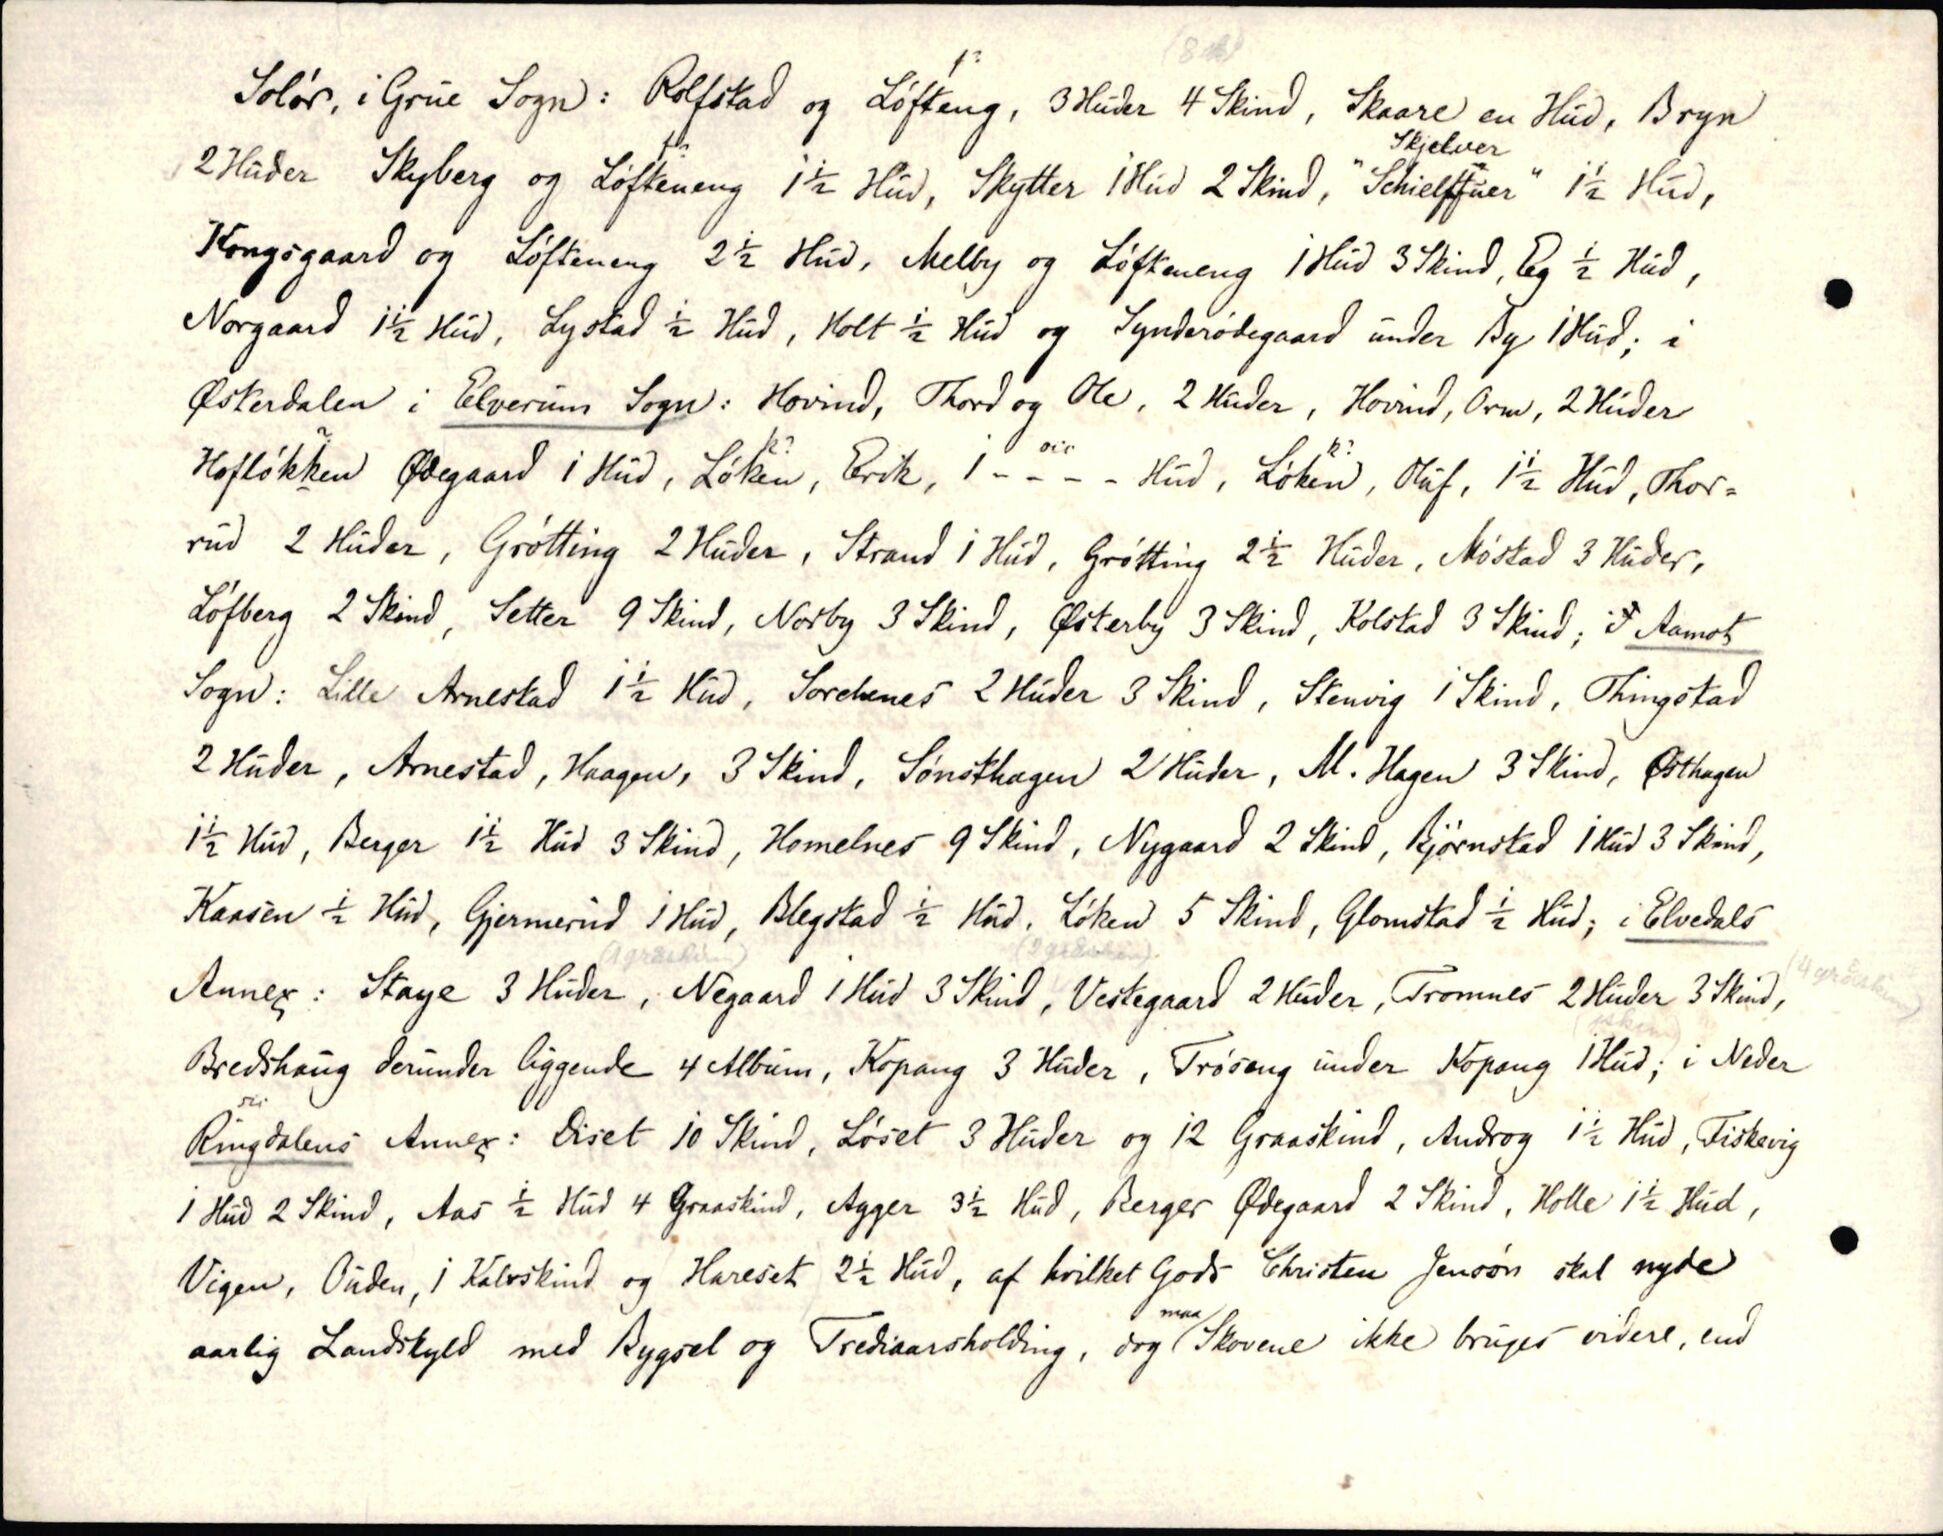 Solør, i Grue Sogn: Rolfstad og Løfteng, 3 Huder 4 Skind, Skaare en Hud, Bryn
2 Huder Skyberg og Løfteneng 1½ Hud, Skytter 1 Hud 2 Skind, "Schielffuer" 1½ Hud,
Skjelver
Kongsgaard og Løfteneng 2½ Hud, Melby og Løfteneng 1 Hud 3 Skind, Eg ½ Hud,
Norgaard 1½ Hud, Lystad ½ Hud, Holt ½ Hud og Synderødegaard under By 1 Hud; i
Østerdalen i Elverum Sogn: Hovind, Thord og Ole, 2 Huder, Hovind, Orm, 2 Huder
Hofløkken Ødegaard 1 Hud, Løken, Erik, 1 - - - - Hud, Løken, Oluf, 1½ Hud, Thor=
rud 2 Huder, Grøtting 2 Huder, Strand 1 Hud, Grøtting 2½ Huder, Møstad 3 Huder,
Løfberg 2 Skind, Setter 9 Skind, Norby 3 Skind, Østerby 3 Skind, Kolstad 3 Skind; i Aamot
Sogn: Lille Arnestad 1½ Hud, Sorchnes 2 Huder 3 Skind, Stenvig 1 Skind, Thingstad
2 Huder, Arnestad, Haagen, 3 Skind, Sønsthagen 2 Huder, M. Hagen 3 Skind, Østhagen
1½ Hud, Berger 1½ Hud 3 Skind, Homelnes 9 Skind, Nygaard 2 Skind, Bjørnstad 1 Hud 3 Skind,
Kaasen ½ Hud, Gjermerud 1 Hud, Blegstad ½ Hud, Løken 5 Skind, Glomstad ½ Hud; i Elvedals
Annex: Staye 3 Huder, Negaard 1 Hud 3 Skind, Vestegaard 2 Huder, Tromnes 2 Huder 3 Skind,
Bredshaug derunder liggende 4 Album, Kopang 3 Huder, Trøseng under Kopang 1 Hud; i Neder
Ringdalens Annex: Diset 10 Skind, Løset 3 Huder og 12 Graaskind, Androg 1½ Hud, Fiskevig
1 Hud 2 Skind, Aas ½ Hud 4 Graaskind, Ayger 3½ Hud, Berger Ødegaard 2 Skind, Holle 1½ Hud,
Vigen, Ouden, 1 Kalvskind og Hareset 2½ Hud, af hvilket Gods Christen Jensøn skal nyde
aarlig Landskyld med Bygsel og Trediaarsholding, dog maa Skovene ikke bruges videre, end